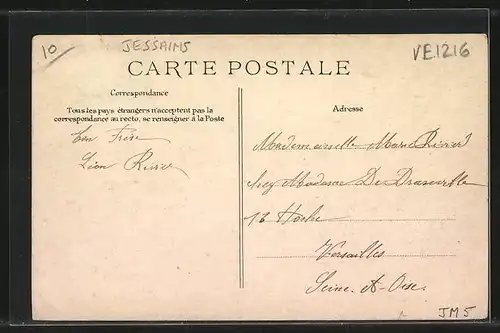 10
JESSAINS
VE1216
CARTE POSTALE
Correspondance
Tous les pays étrangers n'acceptent pas la
correspondance au recto, se renseigner à la Poste
Ton Frère
Léon
Adresse
Mademoiselle Marie
chez Madame De
13 Hoche
Versailles
Seine-et-Oise
JM5